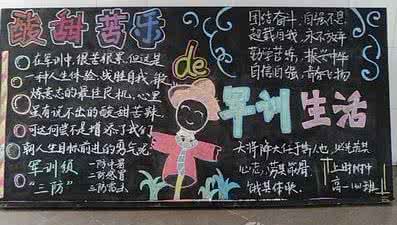 酸甜苦乐
de
军训生活
在军训中,很苦很累,但这是
一种人生体验,战胜自我,锻
炼意志的最佳良机,心里
虽有说不出的酸甜苦辣,
可这何尝不是增添了我们
朝人生目标前进的勇气呢
军训须
"三防"
一防中暑
二防感冒
三防
团结奋斗,自强不息
超越自我,永不放弃
勤学苦练,振兴中华
自信自强,青春飞扬
天将降大任于斯人也,必先苦其
心志,劳其筋骨,
饿其体肤,
高一
班